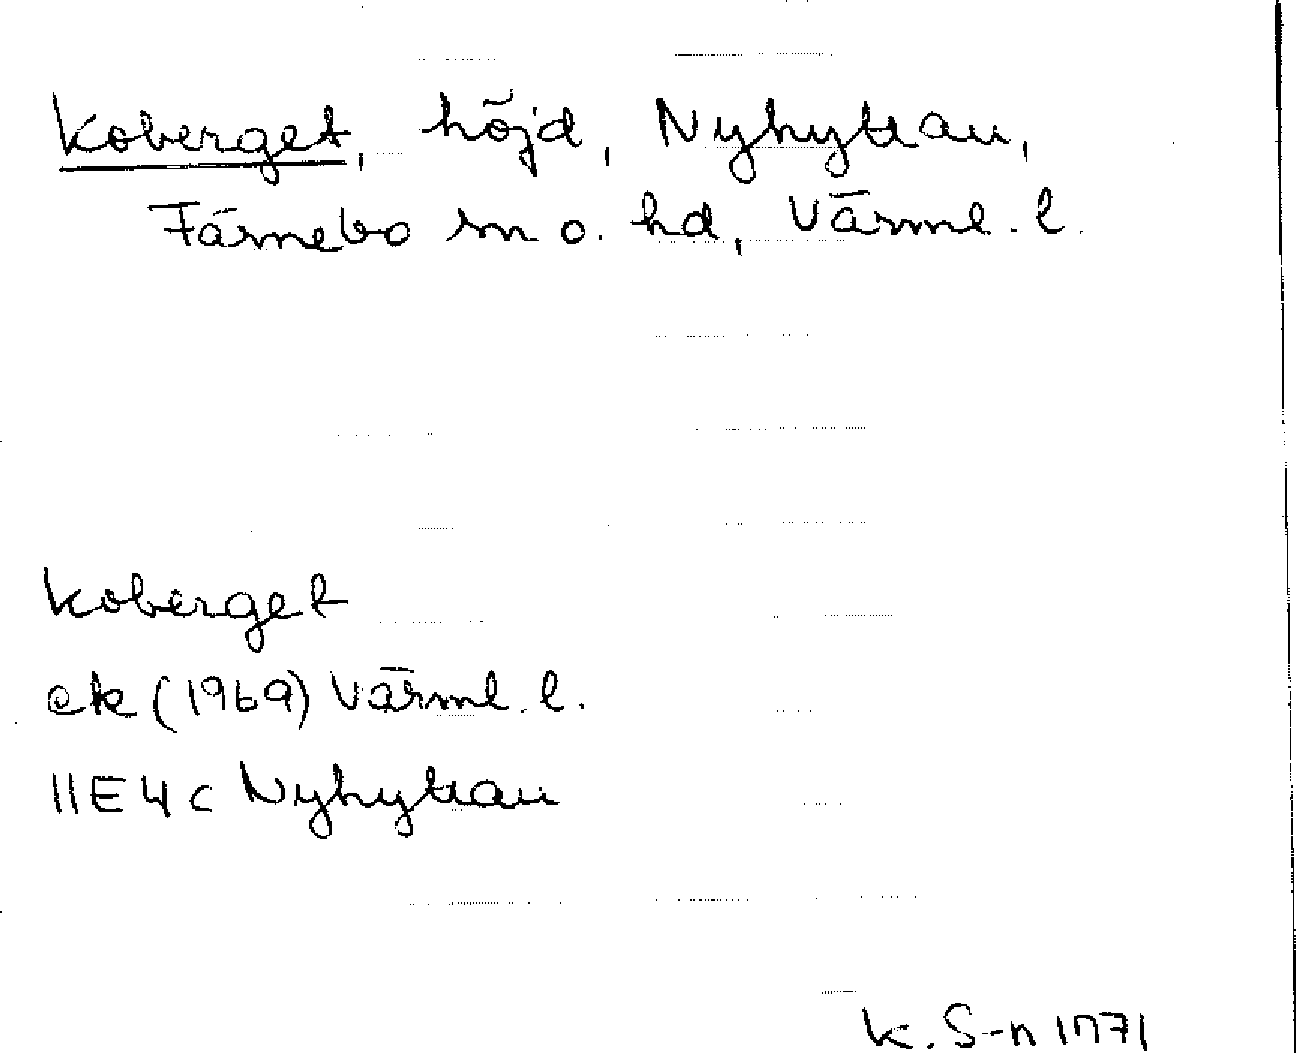 Koberget, höjd, Nyhyttan,
Färnebo sn o. hd, Värml. l.
Koberget
ek (1969) Värml. l.
11E4c Nyhyttan
K. S-n 1971